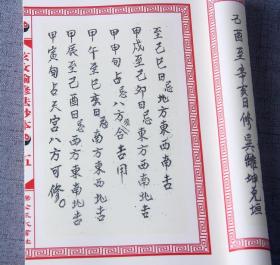 己酉至辛亥日修巽離坤兌垣
至己巳日忌地方東西南吉
甲戌至己卯日忌東方西南北吉
甲申旬占忌八方合吉用
甲午至己亥日忌南方東西北吉
甲辰至己酉日忌西方東南北吉
甲寅旬占天宮八方可修